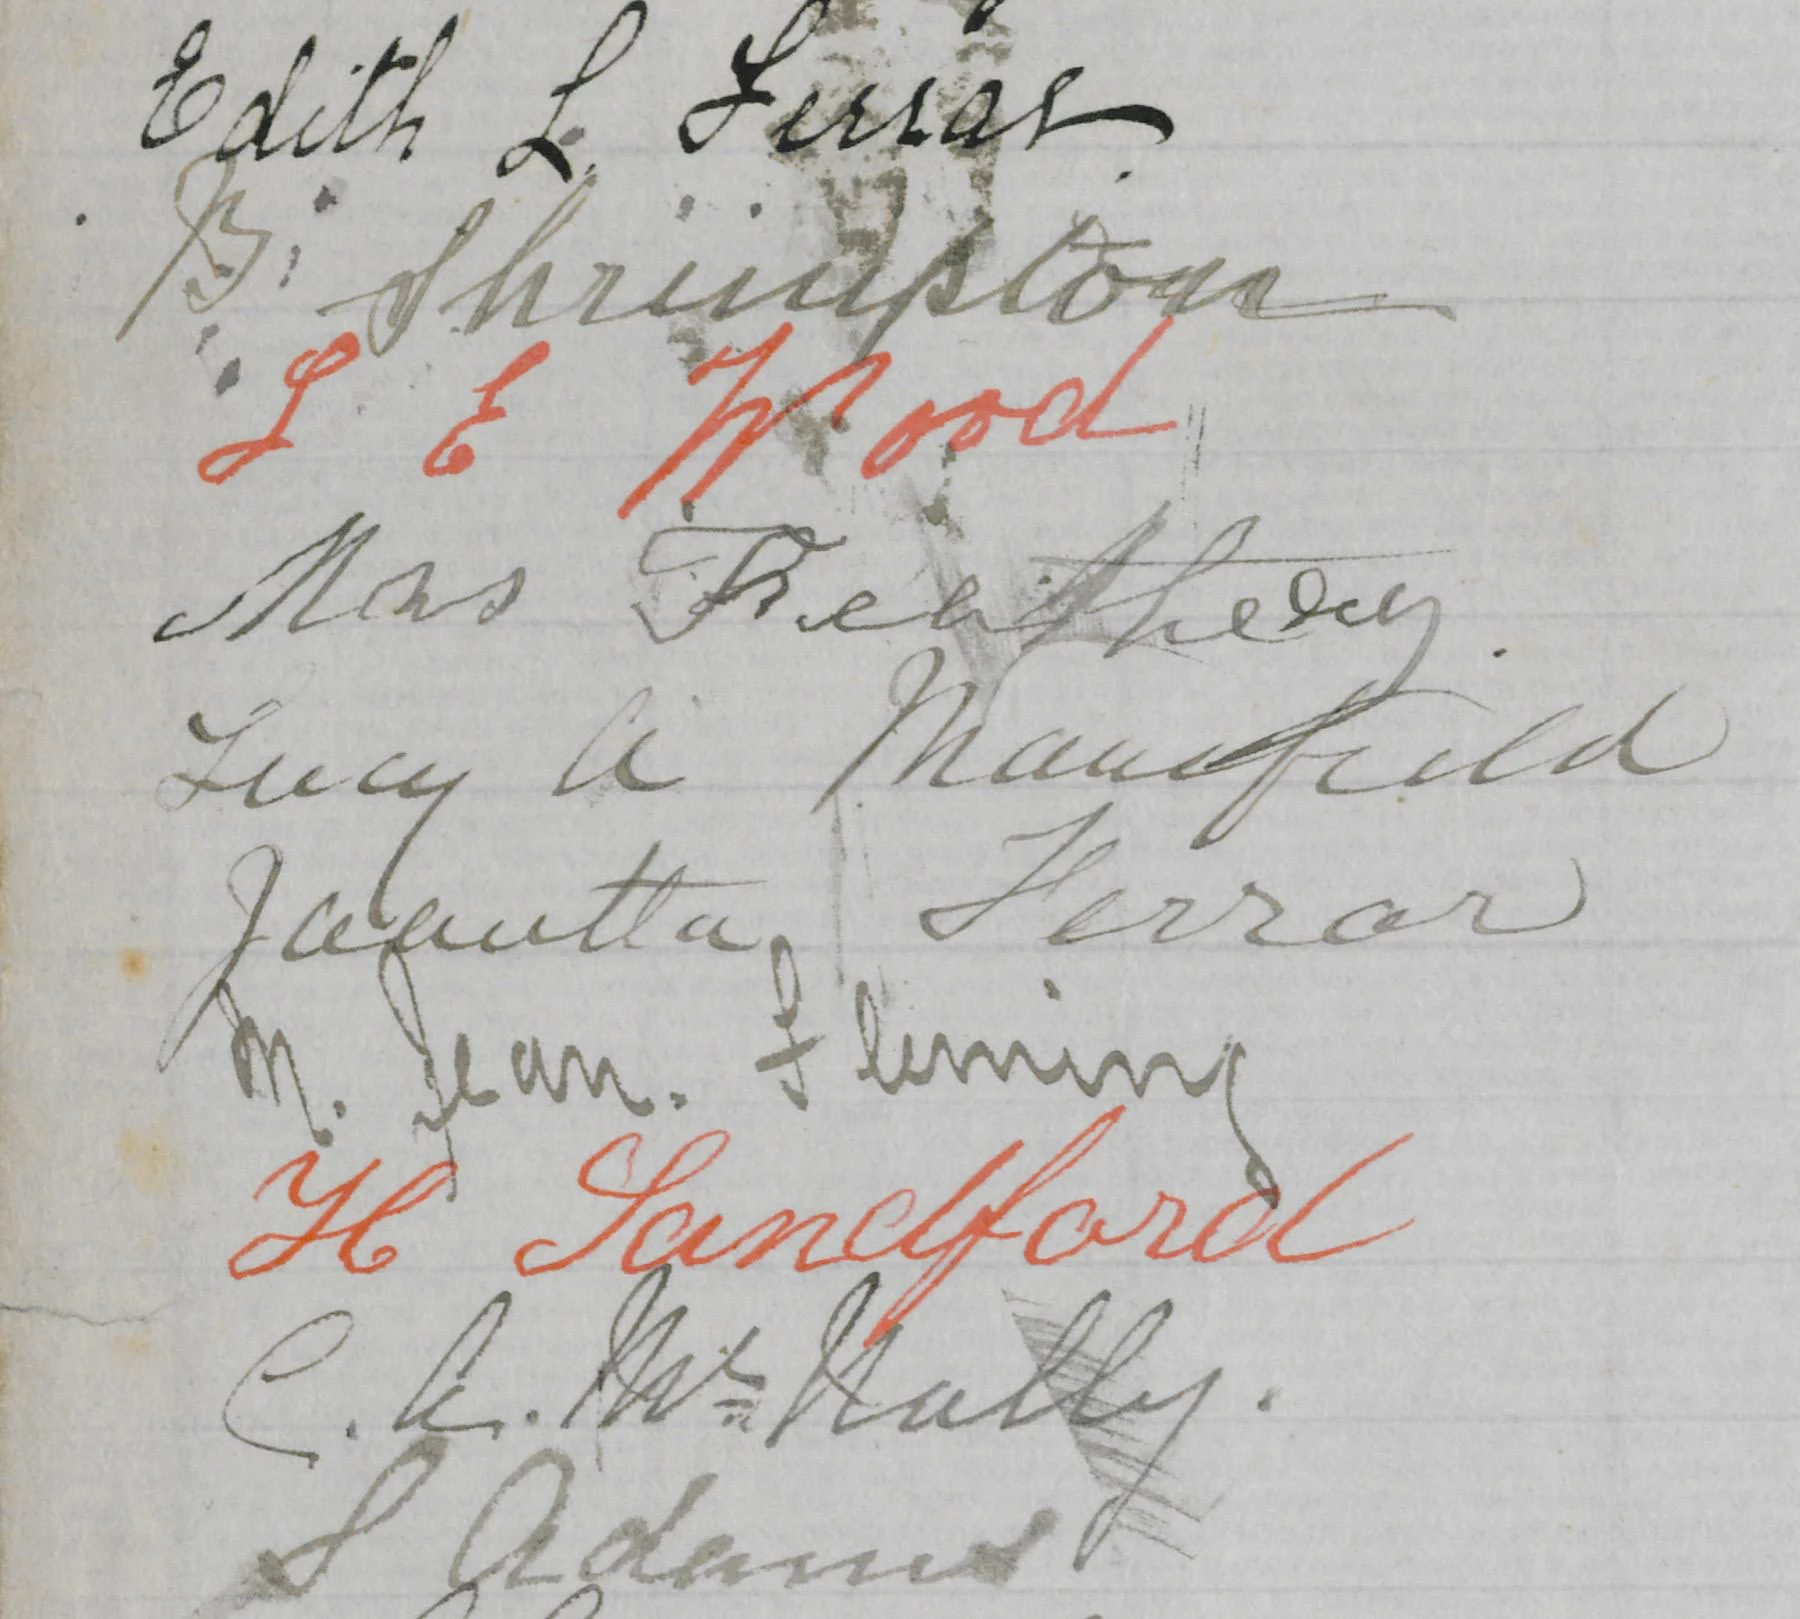 Edith L Ferrar
B. Shrimpton
L E Wood
Mrs Treathery.
Lucy A Mansfield
Jaquetta Ferrar
M. Jean. Fleming
H Sandford
C. A. McNally.
S Adams